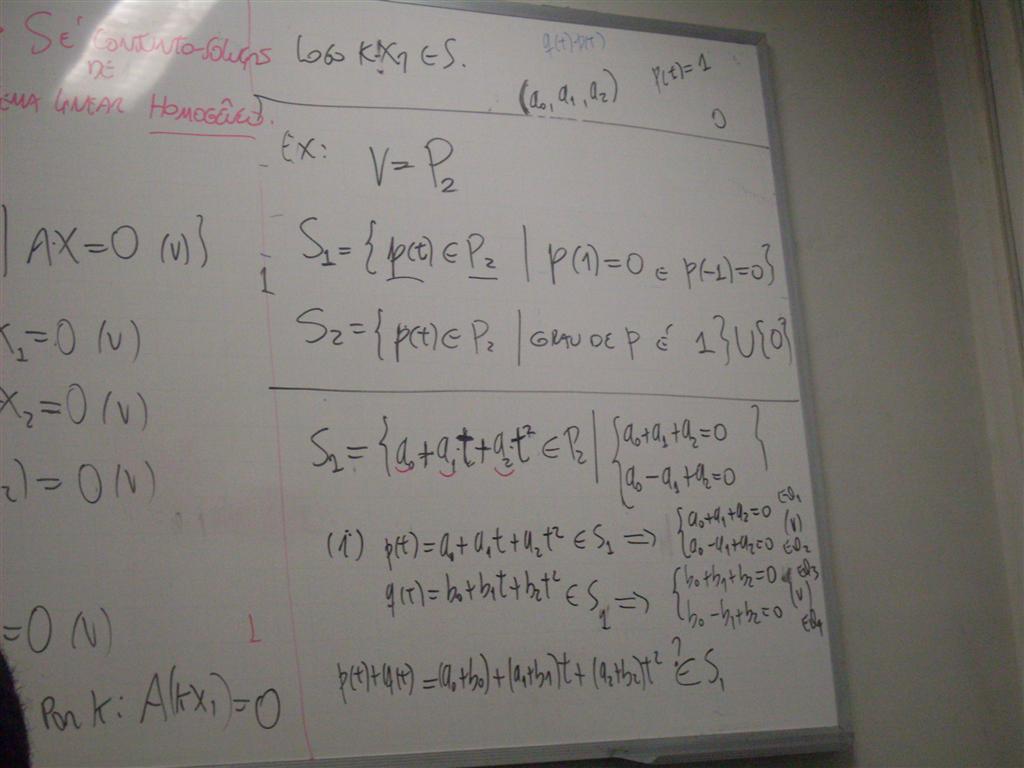 S É CONJUNTO-SOLUÇÃO
DE
EMA LINEAR HOMOGÊNEO.
| A·X=0 (V)}
X₁=0 (V)
X₂=0 (V)
₂)=0 (V)
=0 (V)
POR K: A(KX₁)=0
LOGO K·X₁ ∈ S.
q(t)=p(t)
(a₀, a₁, a₂) p(t)=1
0
EX: V=P₂
S₁={p(t)∈P₂ | p(1)=0 E p(-1)=0}
S₂={p(t)∈P₂ | GRAU DE P É 1}∪{0}
S₁={a₀+a₁t+a₂t²∈P₂ | {a₀+a₁+a₂=0
a₀-a₁+a₂=0 }
(i) p(t)=a₀+a₁t+a₂t²∈S₁ ⟹ {a₀+a₁+a₂=0 EQ₁
a₀-a₁+a₂=0 (V) EQ₂
q(t)=b₀+b₁t+b₂t²∈S₁ ⟹ {b₀+b₁+b₂=0 EQ₃
b₀-b₁+b₂=0 (V) EQ₄
p(t)+q(t)=(a₀+b₀)+(a₁+b₁)t+(a₂+b₂)t² ?∈S₁